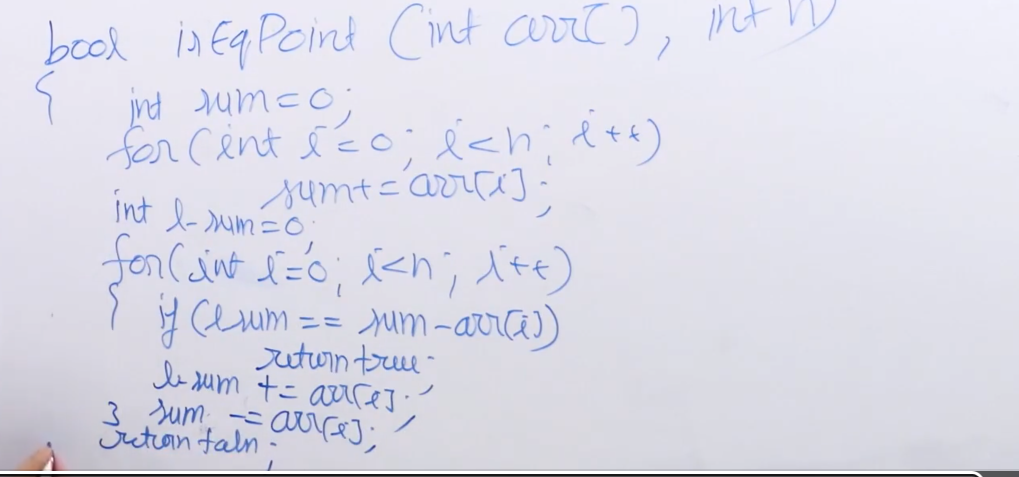 bool isEqPoint (int arr[], int n)
{ int sum=0;
for(int i=0; i<n; i++)
sum+=arr[i];
int l_sum=0;
for(int i=0; i<n; i++)
{ if (lsum == sum-arr[i])
return true;
l_sum += arr[i];
} sum -= arr[i];
return false;